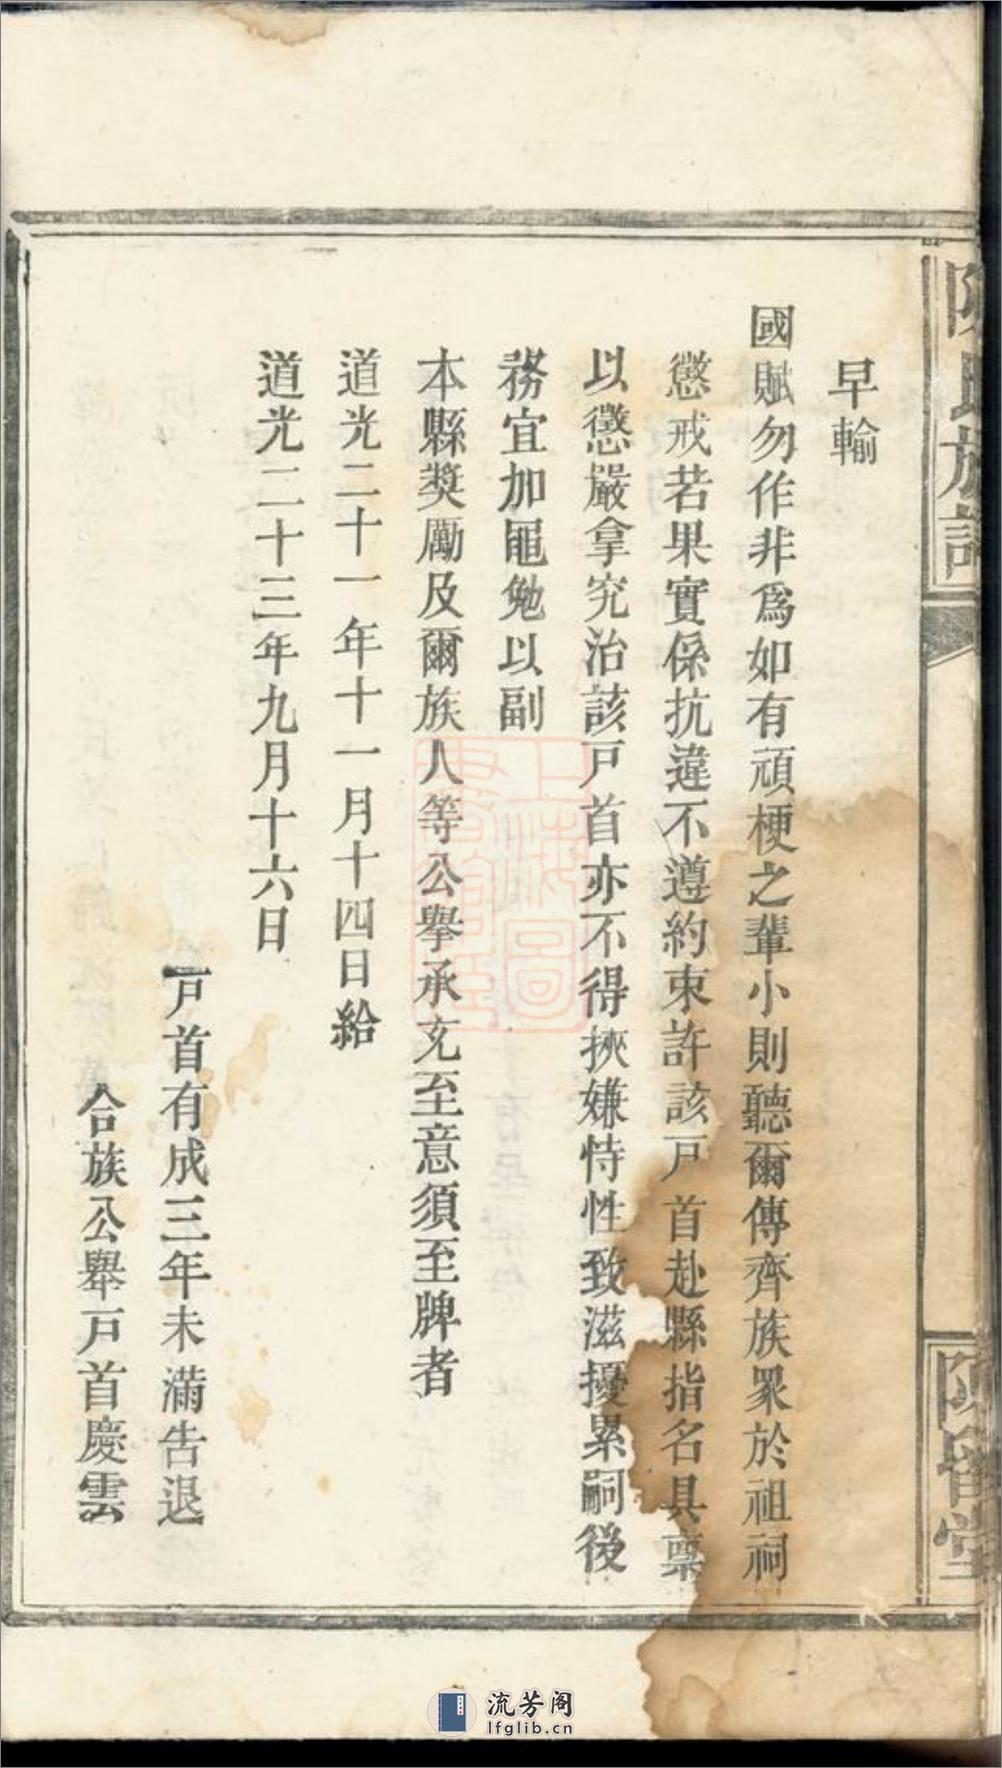 早輸
國賦勿作非爲如有頑梗之輩小則聽爾傳齊族眾於祖祠
懲戒若果實係抗違不遵約束許該戸首赴縣指名具稟
以懲嚴拿究治該戸首亦不得挾嫌恃性致滋擾累嗣後
務宜加黽勉以副
本縣獎勵及爾族人等公舉承充至意須至牌者
道光二十一年十一月十四日給
道光二十三年九月十六日
戸首有成三年未滿告退
合族公舉戸首慶雲
陳氏族譜
陳留堂
上海圖書館藏
流芳阁
lfglib.cn